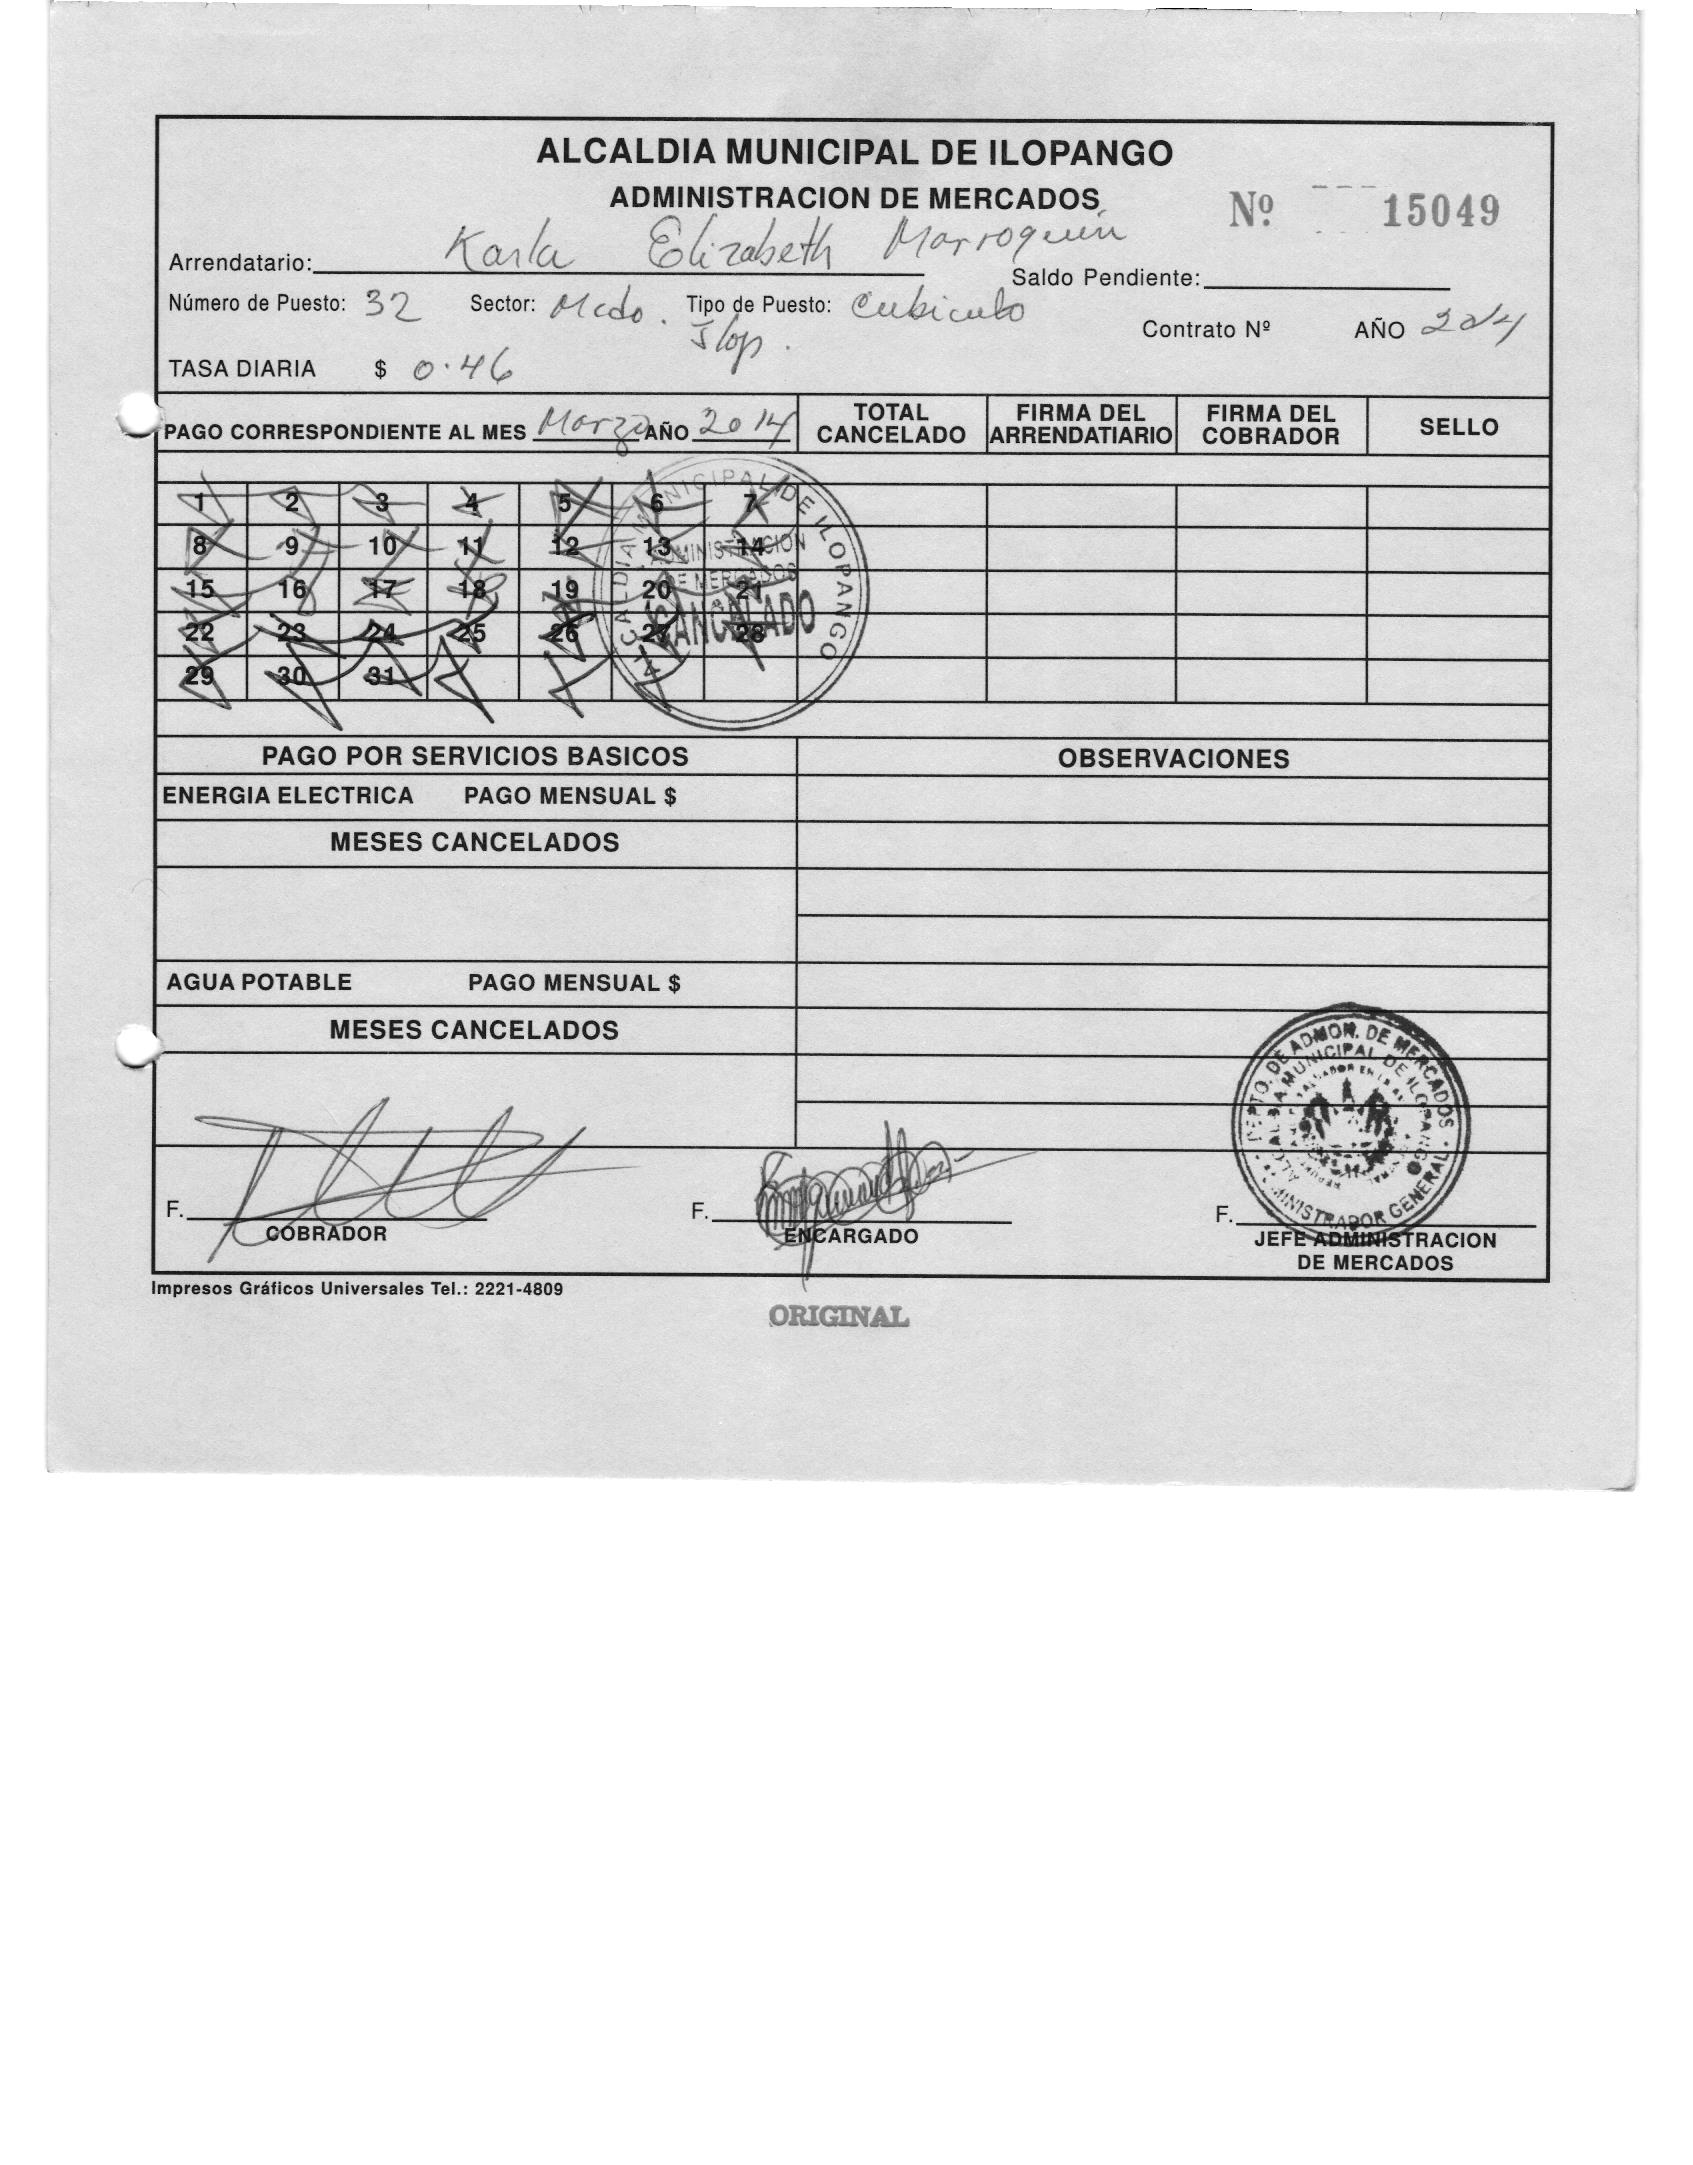 ALCALDIA MUNICIPAL DE ILOPANGO
ADMINISTRACION DE MERCADOS
Nº 15049
Arrendatario: Karla Elizabeth Marroquin
Saldo Pendiente:
Número de Puesto: 32 Sector: Mcdo. Ilop. Tipo de Puesto: Cubiculo
Contrato Nº AÑO 2014
TASA DIARIA $ 0.46
PAGO CORRESPONDIENTE AL MES Marzo AÑO 2014
TOTAL CANCELADO
FIRMA DEL ARRENDATIARIO
FIRMA DEL COBRADOR
SELLO
1 2 3 4 5 6 7
8 9 10 11 12 13 14
15 16 17 18 19 20 21
22 23 24 25 26 27 28
29 30 31
ALCALDIA MUNICIPAL DE ILOPANGO
ADMINISTRACION
DE MERCADOS
CANCELADO
PAGO POR SERVICIOS BASICOS
OBSERVACIONES
ENERGIA ELECTRICA PAGO MENSUAL $
MESES CANCELADOS
AGUA POTABLE PAGO MENSUAL $
MESES CANCELADOS
DEPTO. DE ADMON. DE MERCADOS
ALCALDIA MUNICIPAL DE ILOPANGO
ADMINISTRADOR GENERAL
F. COBRADOR
F. ENCARGADO
F. JEFE ADMINISTRACION
DE MERCADOS
Impresos Gráficos Universales Tel.: 2221-4809
ORIGINAL